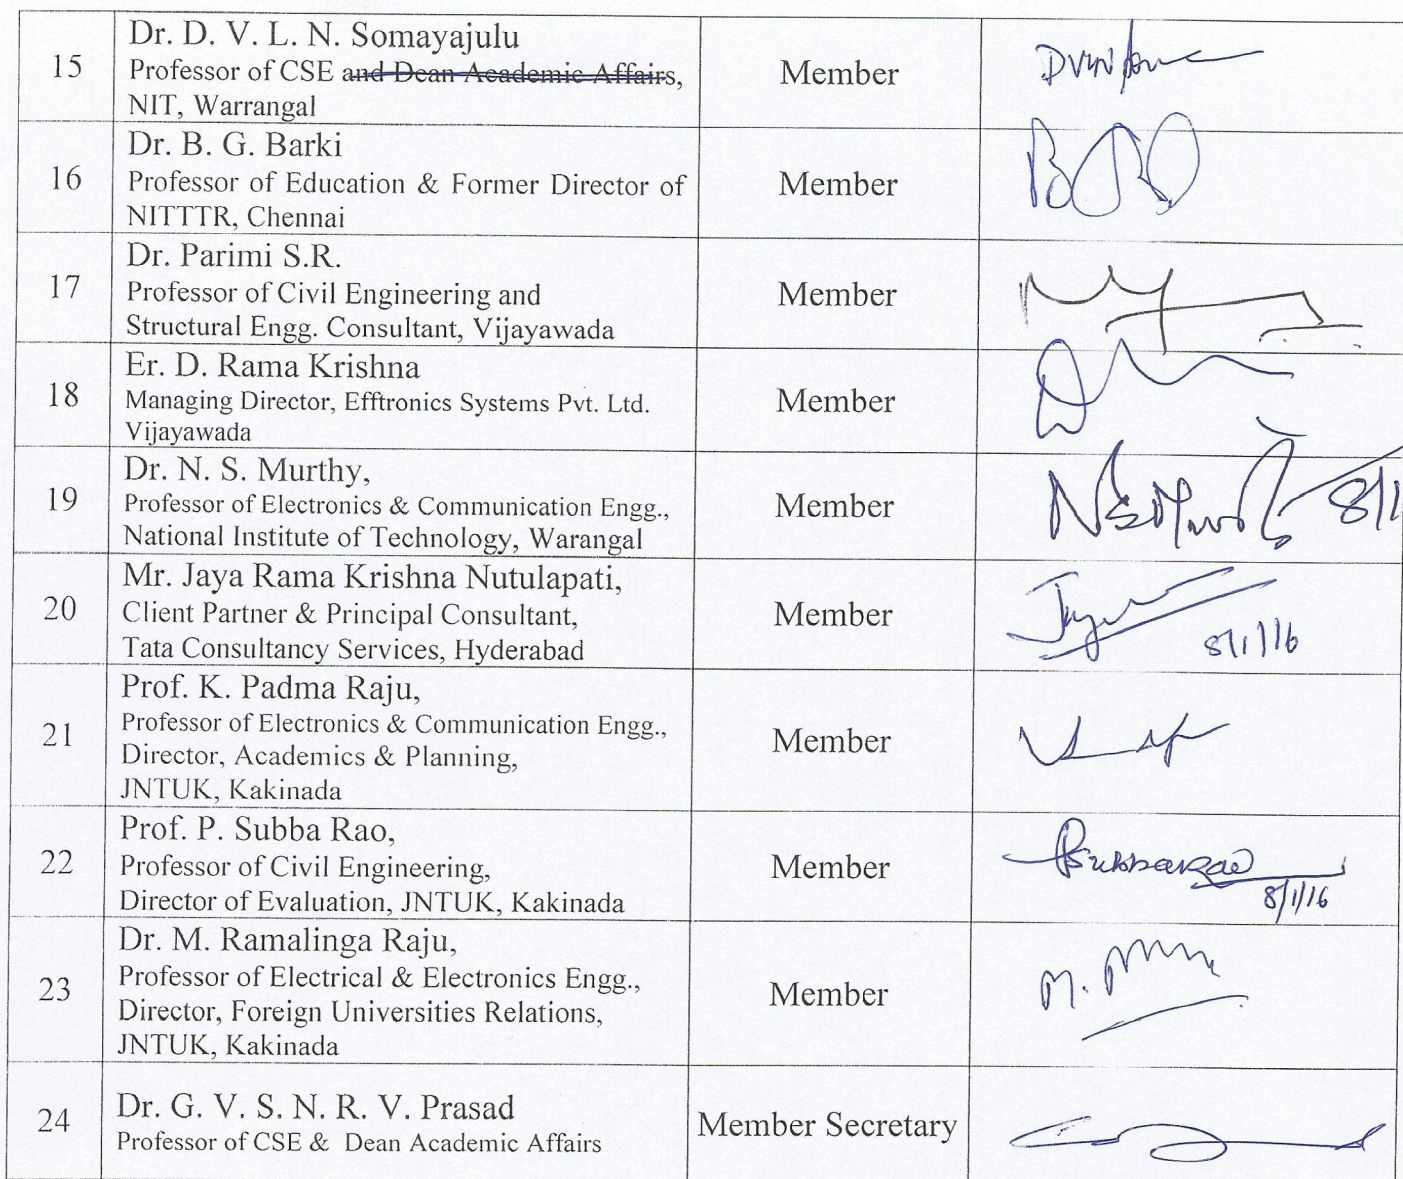 15
Dr. D. V. L. N. Somayajulu
Professor of CSE and Dean Academic Affairs,
NIT, Warrangal
Member
16
Dr. B. G. Barki
Professor of Education & Former Director of
NITTTR, Chennai
Member
17
Dr. Parimi S.R.
Professor of Civil Engineering and
Structural Engg. Consultant, Vijayawada
Member
18
Er. D. Rama Krishna
Managing Director, Efftronics Systems Pvt. Ltd.
Vijayawada
Member
19
Dr. N. S. Murthy,
Professor of Electronics & Communication Engg.,
National Institute of Technology, Warangal
Member
8/1
20
Mr. Jaya Rama Krishna Nutulapati,
Client Partner & Principal Consultant,
Tata Consultancy Services, Hyderabad
Member
8/1/16
21
Prof. K. Padma Raju,
Professor of Electronics & Communication Engg.,
Director, Academics & Planning,
JNTUK, Kakinada
Member
22
Prof. P. Subba Rao,
Professor of Civil Engineering,
Director of Evaluation, JNTUK, Kakinada
Member
Psubbarao
8/1/16
23
Dr. M. Ramalinga Raju,
Professor of Electrical & Electronics Engg.,
Director, Foreign Universities Relations,
JNTUK, Kakinada
Member
24
Dr. G. V. S. N. R. V. Prasad
Professor of CSE & Dean Academic Affairs
Member Secretary